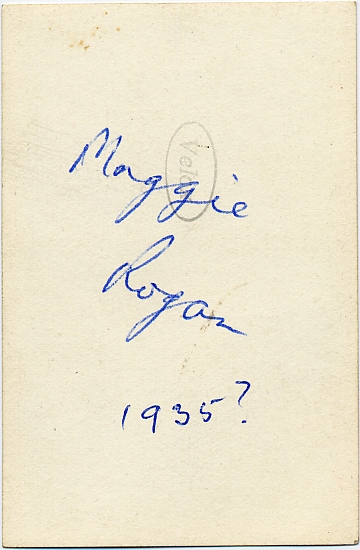 Maggie
Rogan
1935?
Velox